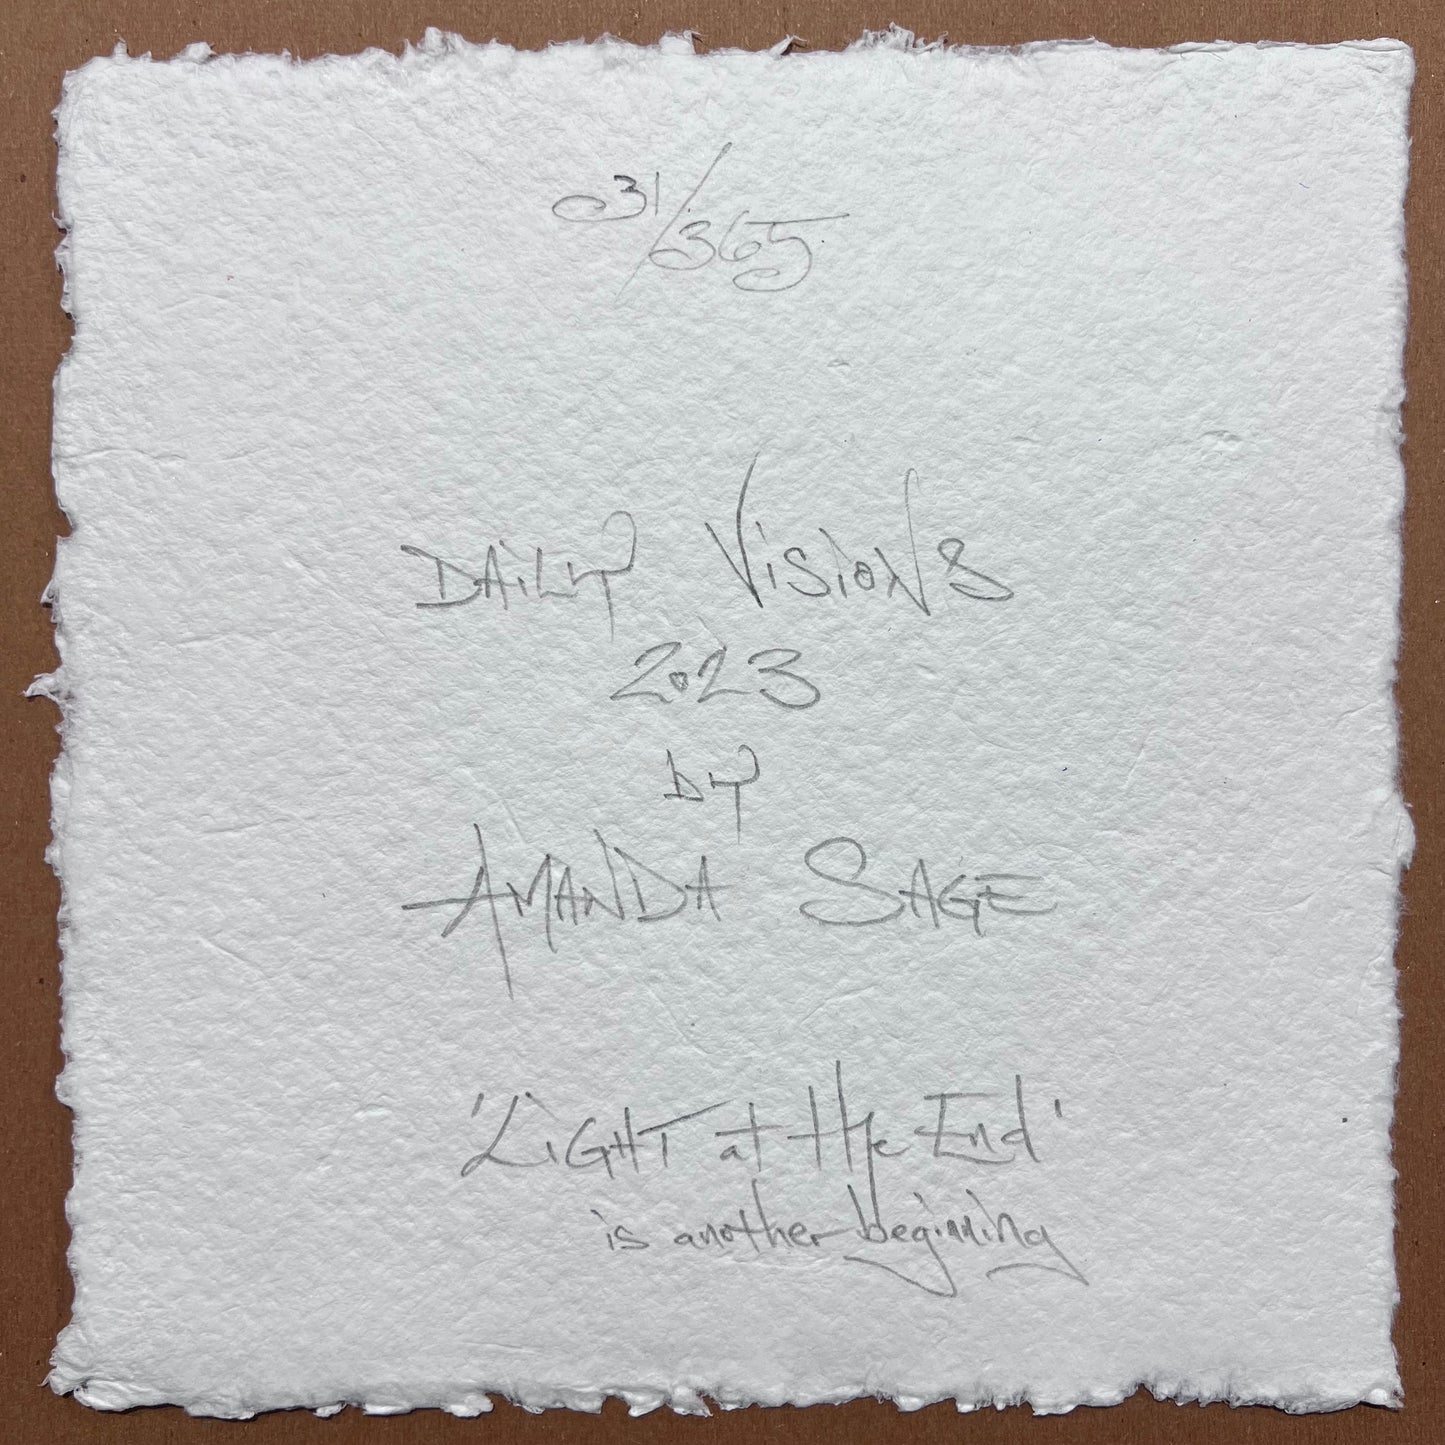 031/365
DAiLY VisioNs
2023
by
AMANDA SAGE
'LiGHT at the End'
is another beginning